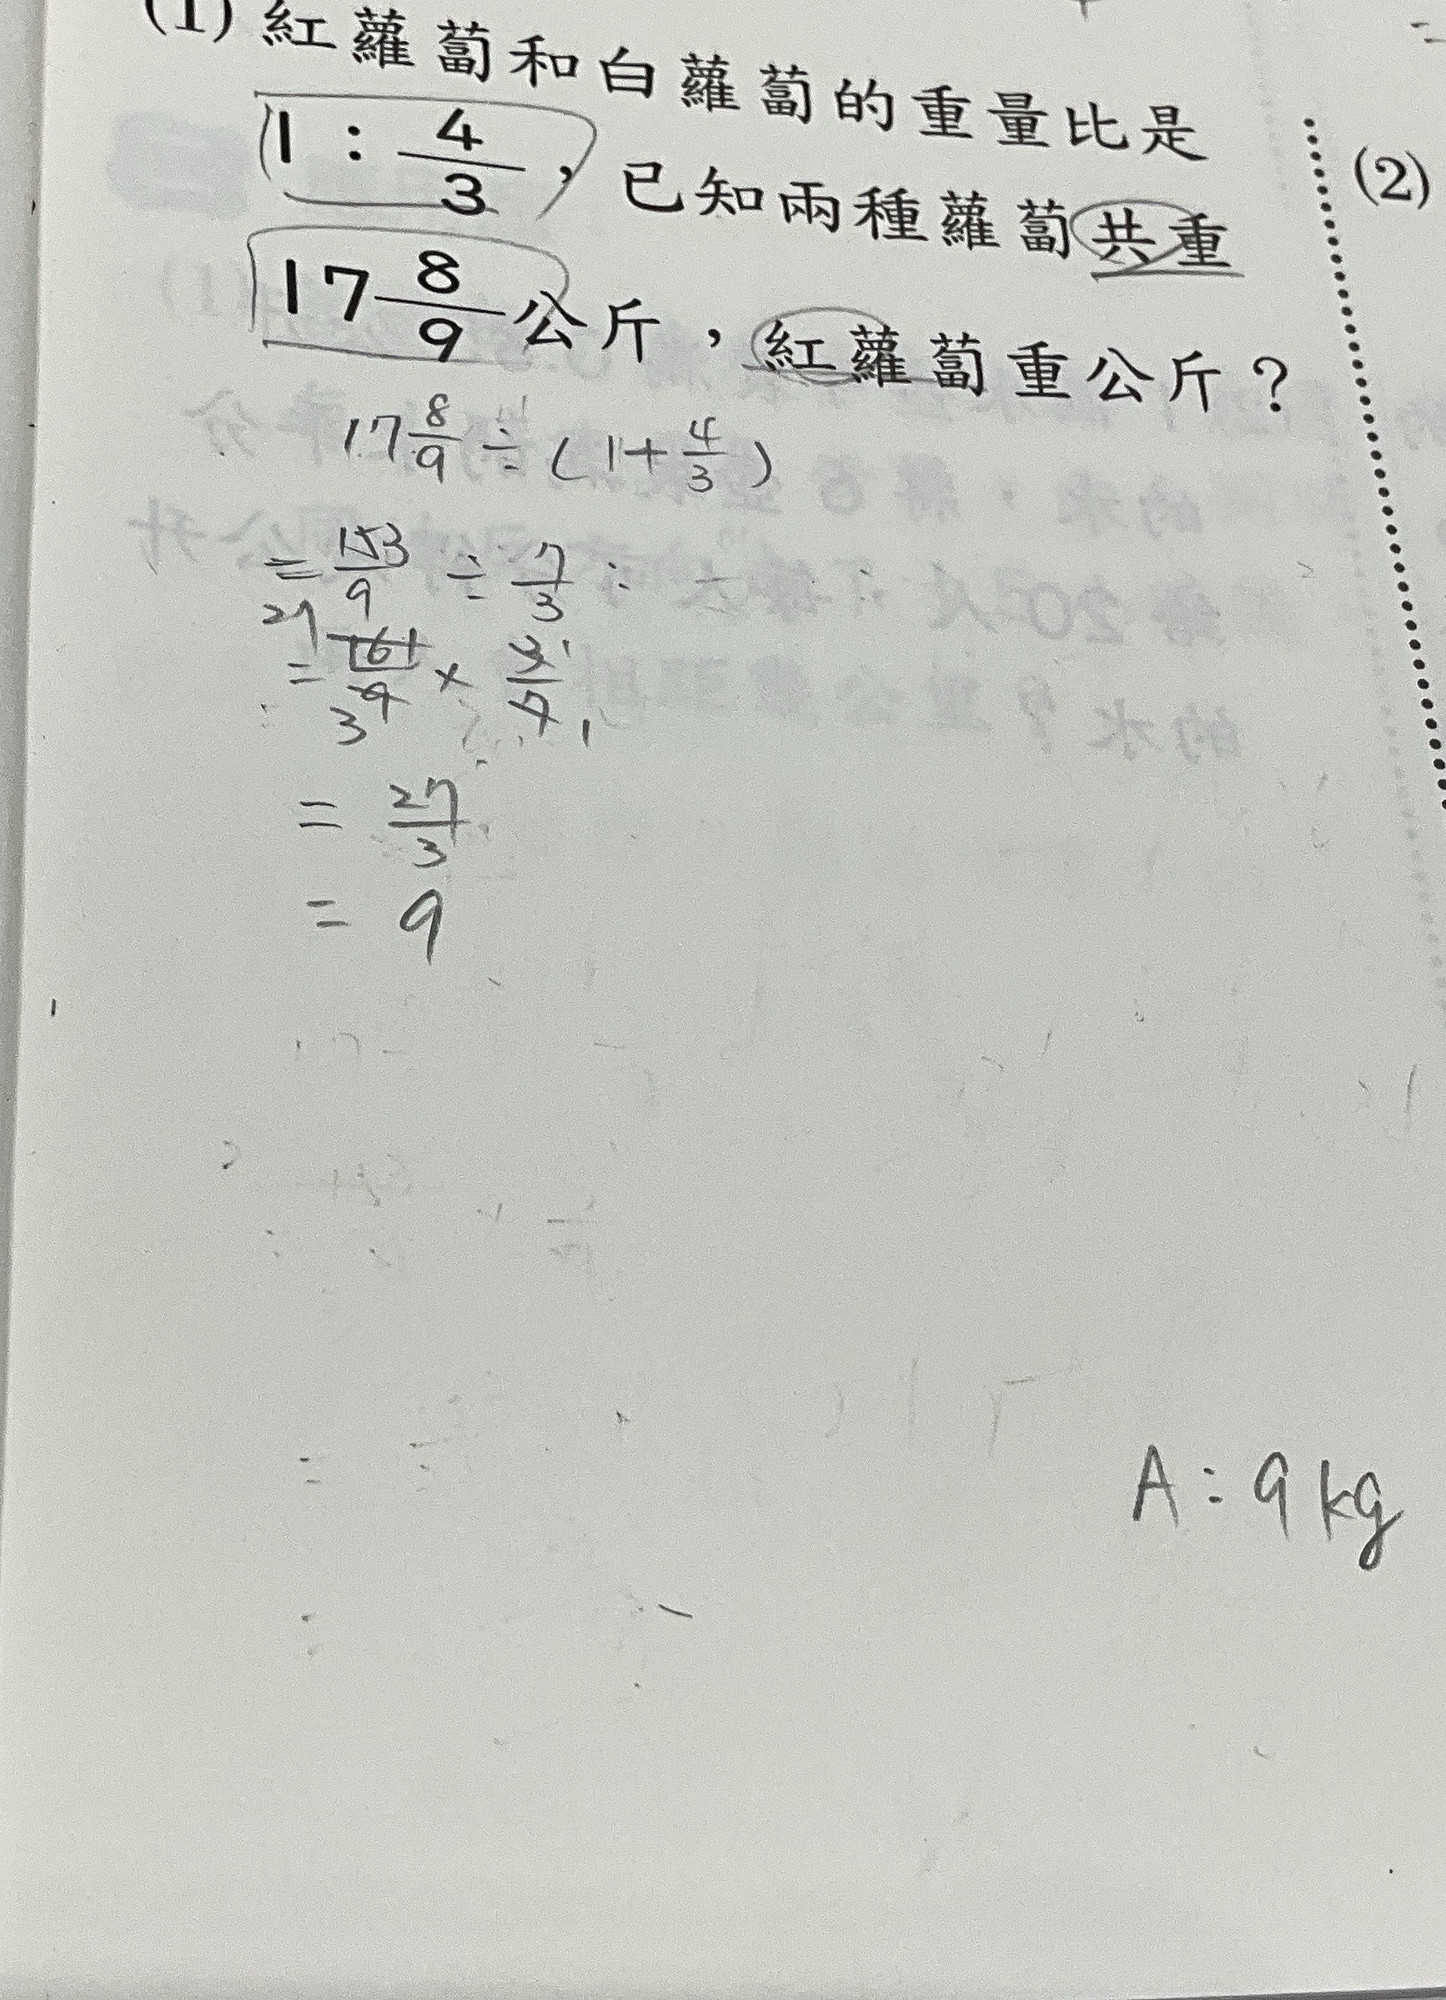 (1) 紅蘿蔔和白蘿蔔的重量比是
1 : 4/3 , 已知兩種蘿蔔共重
17 8/9 公斤，紅蘿蔔重公斤？
(2)
17 8/9 ÷ ( 1 + 4/3 )
= 153/9 ÷ 7/3
= 161/9 × 3/7
27 3 1 1
= 27/3
= 9
A : 9 kg